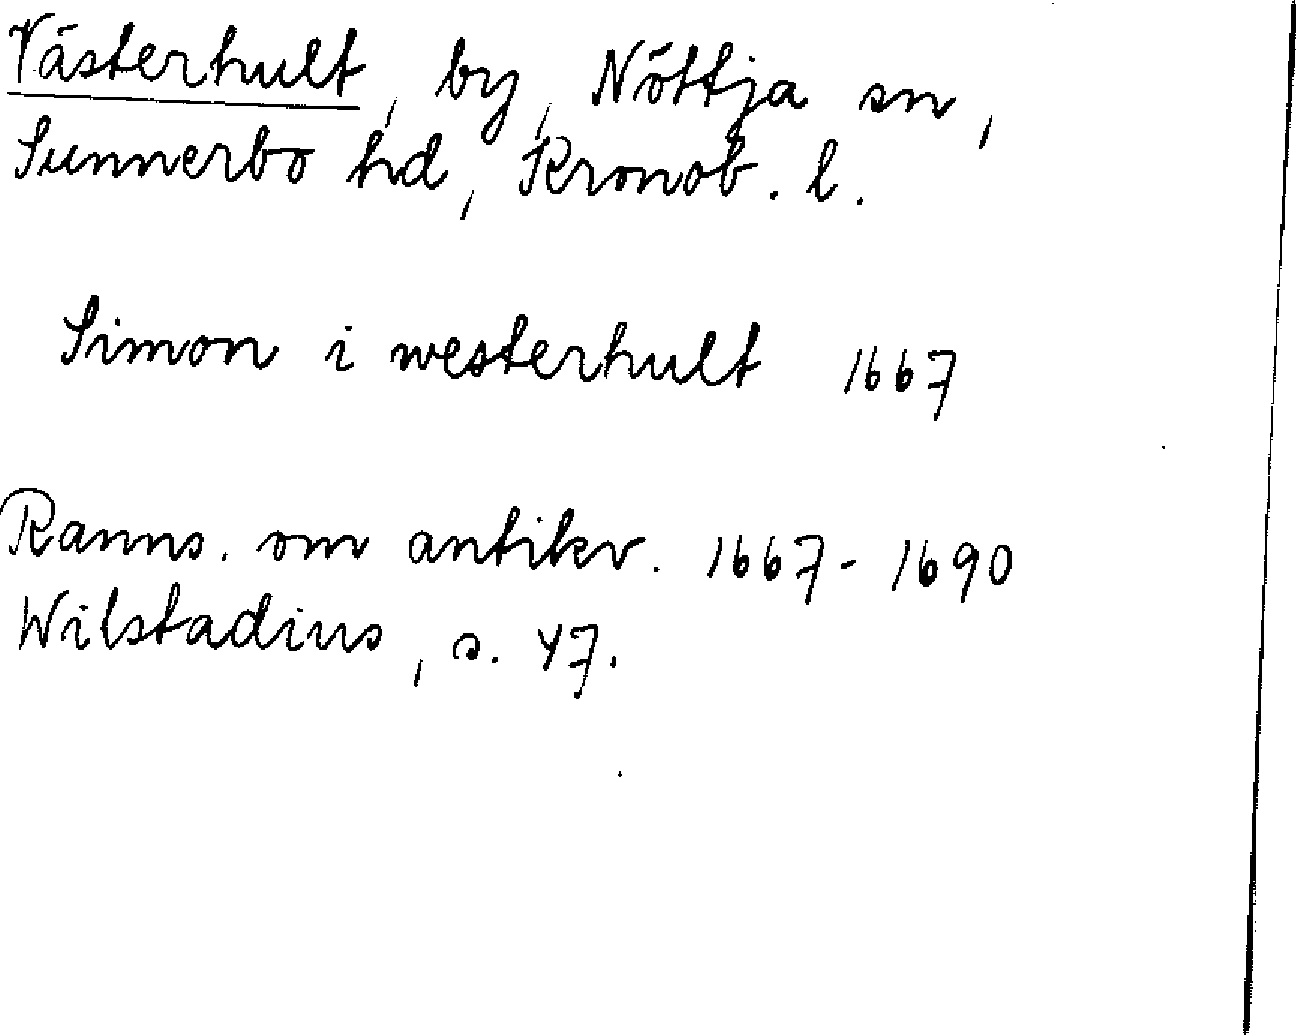 Västerhult, by, Nöttja sn,
Sunnerbo hd, Kronob. l.
Simon i westerhult 1667
Ranns. om antikv. 1667-1690
Wilstadius, s. 47.